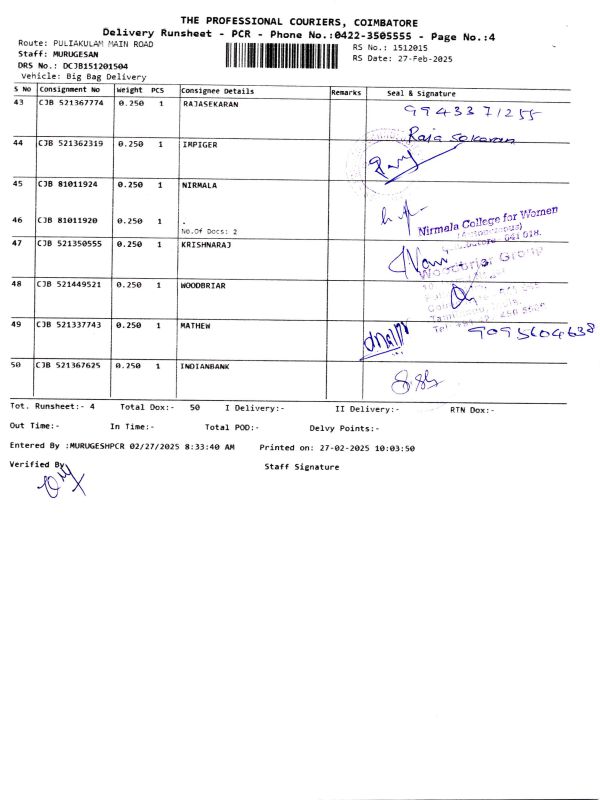 THE PROFESSIONAL COURIERS, COIMBATORE
Delivery Runsheet - PCR - Phone No.:0422-3505555 - Page No.:4
Route: PULIAKULAM MAIN ROAD
RS No.: 1512015
Staff: MURUGESAN
RS Date: 27-Feb-2025
DRS No.: DCJB151201504
Vehicle: Big Bag Delivery
S No Consignment No Weight PCS Consignee Details Remarks Seal & Signature
43 CJB 521367774 0.250 1 RAJASEKARAN 9943371255
Raja Sekaran
44 CJB 521362319 0.250 1 IMPIGER
45 CJB 81011924 0.250 1 NIRMALA
46 CJB 81011920 0.250 1 .
No.Of Docs: 2
Nirmala College for Women
(Autonomous)
641 018.
47 CJB 521350555 0.250 1 KRISHNARAJ
Woodbriar Group
48 CJB 521449521 0.250 1 WOODBRIAR
49 CJB 521337743 0.250 1 MATHEW 9095604638
50 CJB 521367625 0.250 1 INDIANBANK
Tot. Runsheet:- 4 Total Dox:- 50 I Delivery:- II Delivery:- RTN Dox:-
Out Time:- In Time:- Total POD:- Delvy Points:-
Entered By :MURUGESHPCR 02/27/2025 8:33:40 AM Printed on: 27-02-2025 10:03:50
Verified By Staff Signature